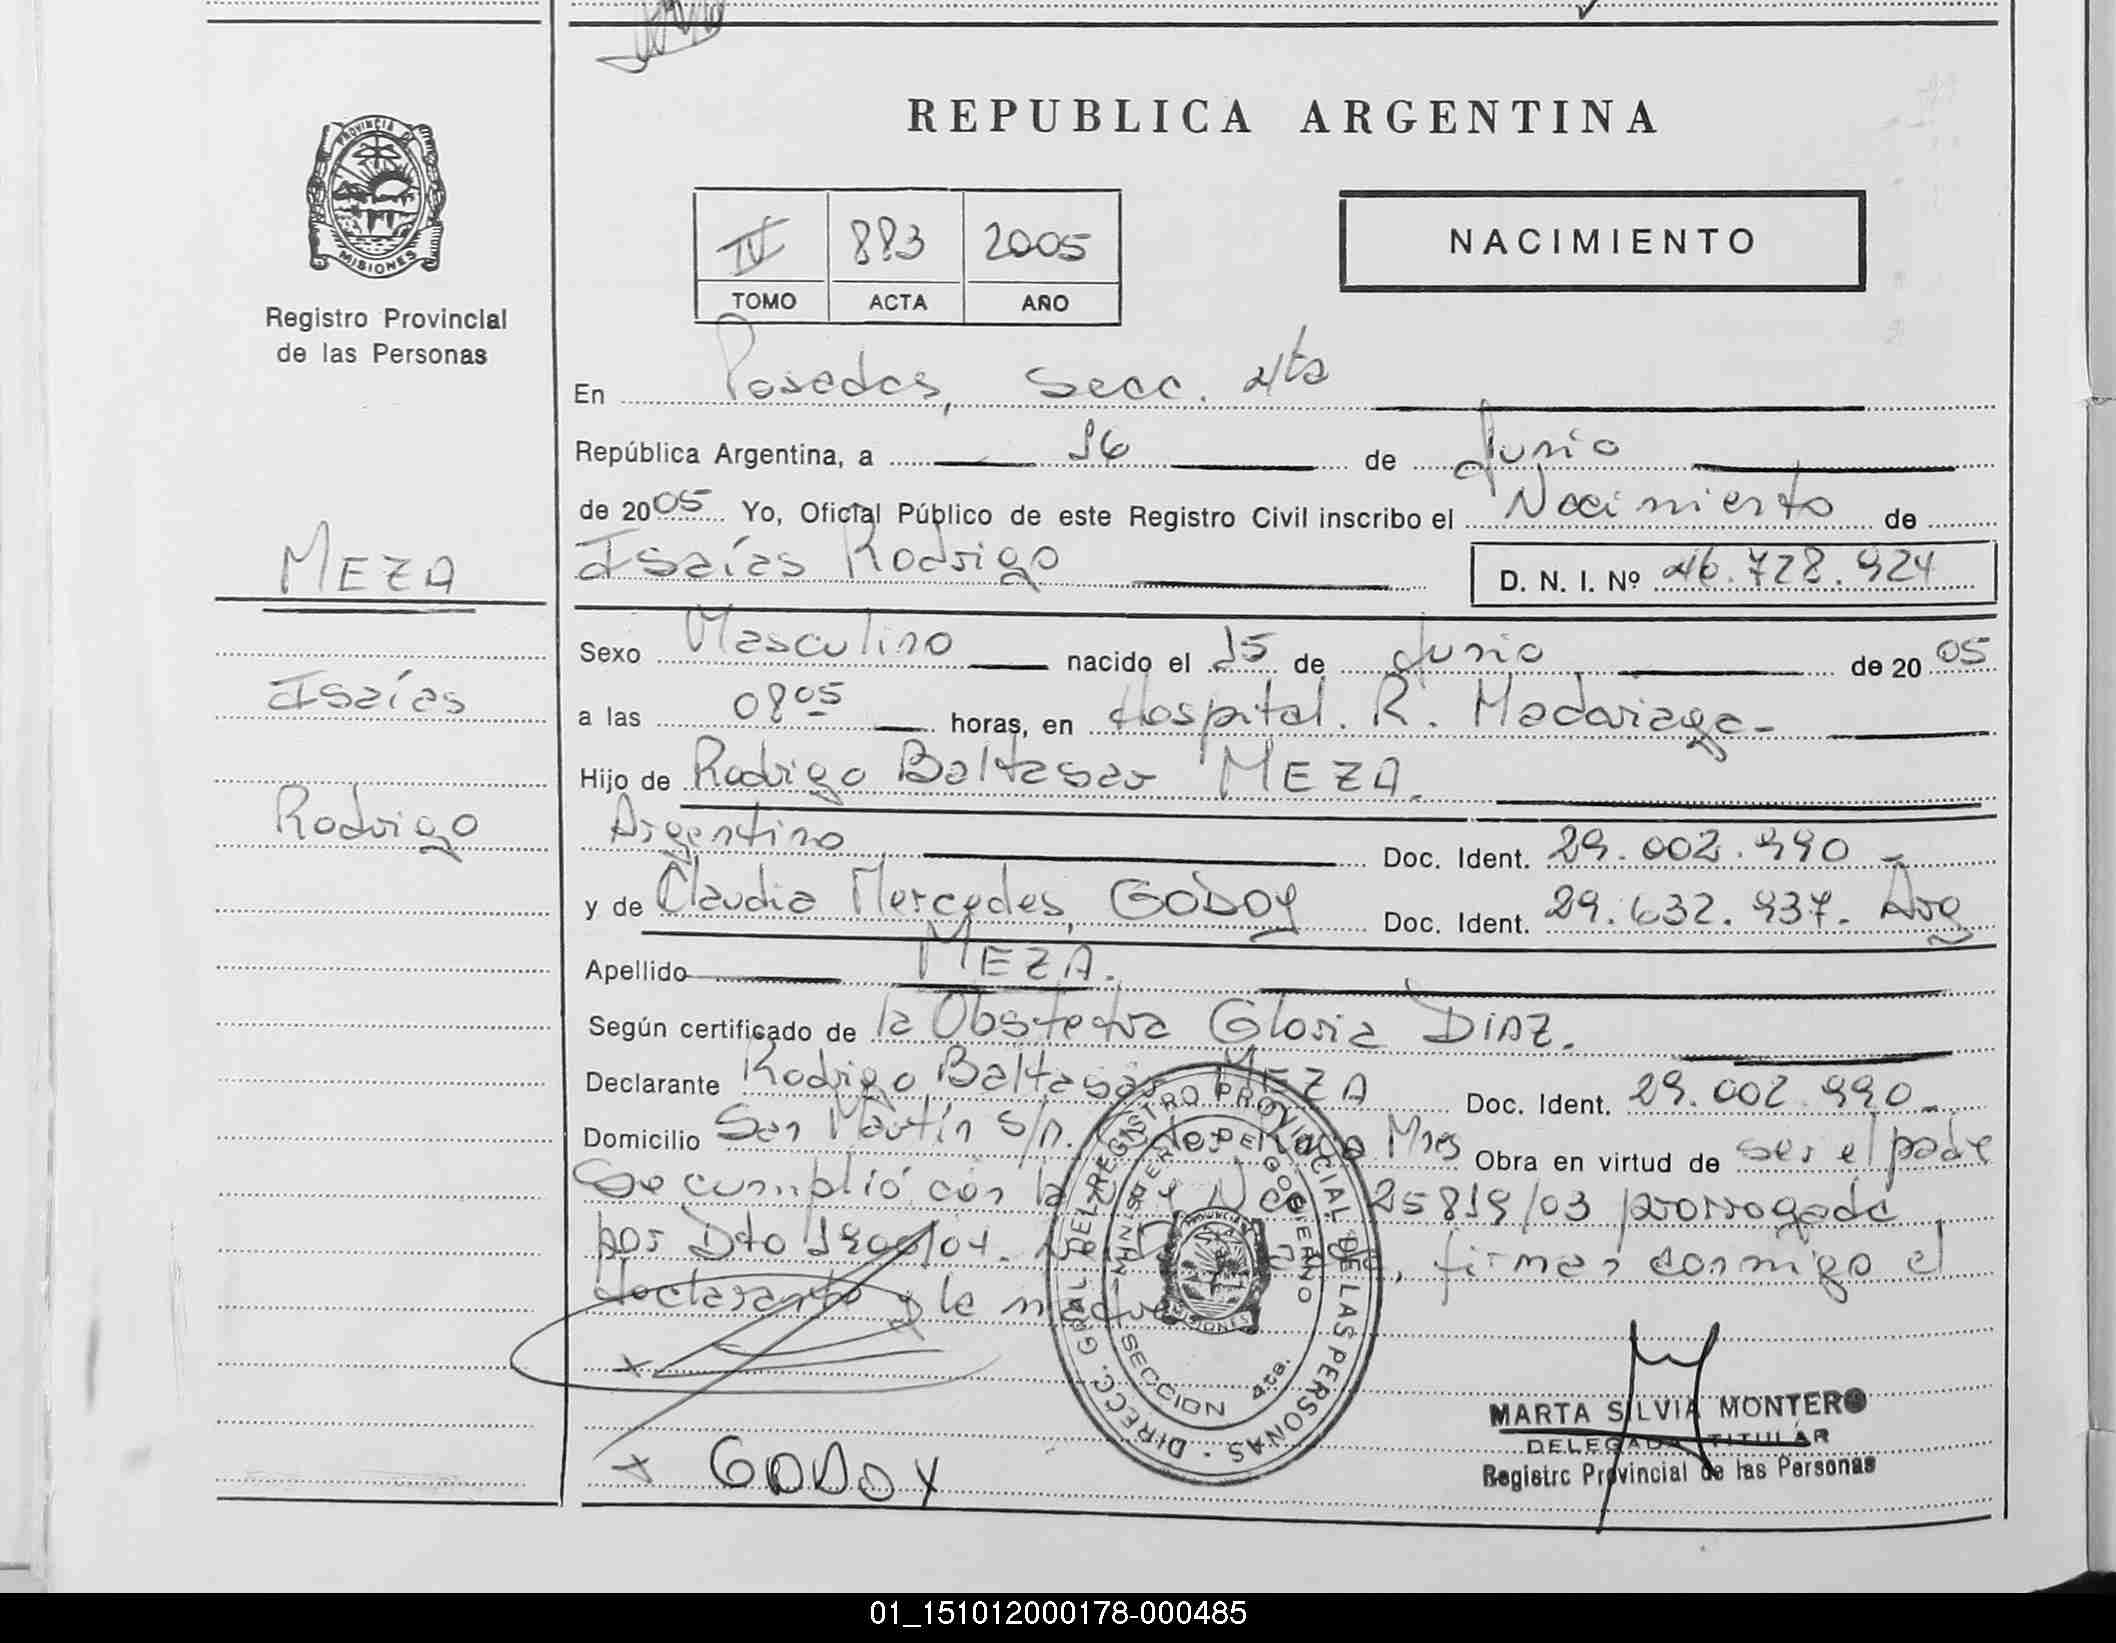 REPUBLICA ARGENTINA
PROVINCIA DE
MISIONES
Registro Provincial
de las Personas
IV 883 2005
TOMO ACTA AÑO
NACIMIENTO
En Posadas, Secc. 4ta
República Argentina, a 16 de Junio
de 2005 Yo, Oficial Público de este Registro Civil inscribo el Nacimiento de
Isaías Rodrigo
D. N. I. Nº 46.728.924
MEZA
Isaías
Rodrigo
Sexo Masculino nacido el 15 de Junio de 2005
a las 08 05 horas, en Hospital. R. Madariaga-
Hijo de Rodrigo Baltasar MEZA.
Argentino Doc. Ident. 29.002.990 -
y de Claudia Mercedes, GODOY Doc. Ident. 29.632.937. Arg
Apellido MEZA.
Según certificado de la Obstetra Gloria DIAZ.
Declarante Rodrigo Baltasar MEZA Doc. Ident. 29.002.990-
Domicilio San Martín s/n. Mnes Obra en virtud de ser el padre
Se cumplió con la Ley Nro 25819/03 prorrogada
por Dto 1900/04. firman conmigo el
declarante y la madre
DIRECC. GRAL DEL REGISTRO PROVINCIAL DE LAS PERSONAS
MINISTERIO DE GOBIERNO
PROVINCIA
MISIONES
SECCION 4ta.
x
x GODOY
MARTA SILVIA MONTERO
DELEGADA TITULAR
Registro Provincial de las Personas
01_151012000178-000485